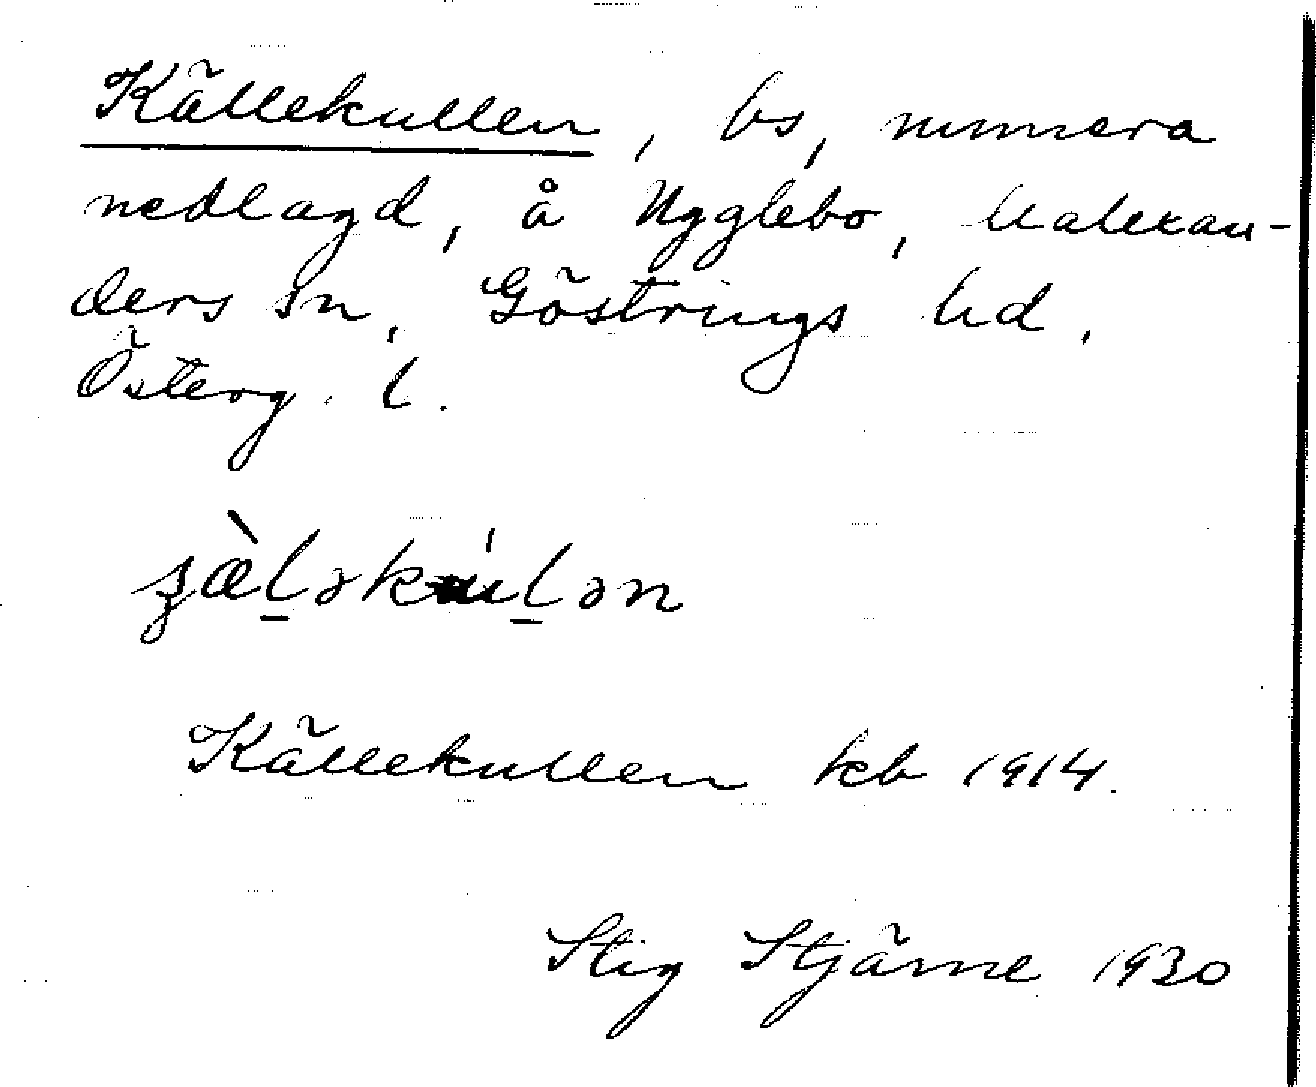 Källekullen, bs, numera
nedlagd, å Ugglebo, Malexan-
ders sn, Göstrings hd,
Österg. l.
Källekullen kb 1914.
Stig Stjärne 1930